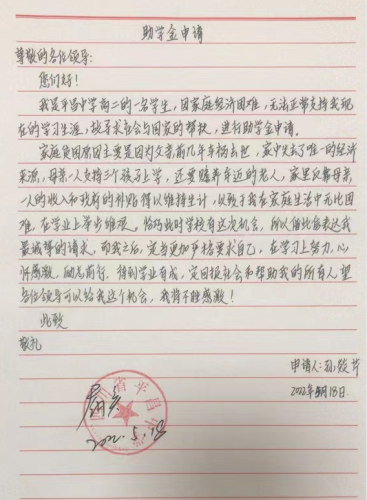 助学金申请
尊敬的各位领导:
您们好!
我是平昌中学高二的一名学生,因家庭经济困难,无法正常支持我现
在的学习生涯,故寻求社会与国家的帮扶,进行助学金申请。
家庭贫困原因主要是因为父亲前几年车祸去世,家中失去了唯一的经济
来源,母亲一人支持三个孩子上学,还要赡养年迈的老人,家里仅靠母亲
一人的收入和政府的补贴得以维持生计,以致于我在家庭生活中无比困
难,在学业上举步维艰。恰巧此时学校有这次机会,所以借此能表达我
最诚挚的请求。而我之后,定当更加严格要求自己,在学习上努力,心
怀感激,励志前行,待到学业有成,定回报社会和帮助我的所有人望
各位领导可以给我这个机会,我将不胜感激!
此致
敬礼
申请人:孙
2022年5月18日
省平昌中学
属实
2022.5.18